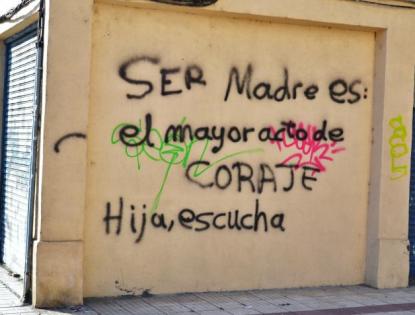 SER Madre es:
el mayor acto de
CORAJE
Hija, escucha